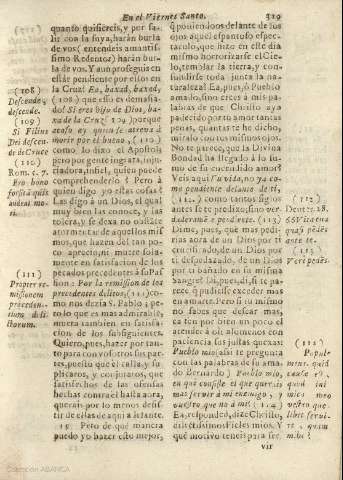 En el Viernes Santo.
319
quanto quisiereis, y por sa-
lir con la suya, harán burla
de vos (entendeis amantis-
simo Redentor) harán bur-
la de vos. Y aun proseguia en
estár pendiente por ellos en
la Cruz! Ea, baxad, baxad,
(108.) que esso es demasia-
do! Si eres hijo de Dios, ba-
xa de la Cruz (109) porque
acaso ay quien se atreva à
morir por el bueno, (110.)
como lo dixo el Apostol;
pero por gente ingrata, inju-
riadora, infiel, quien puede
comprehenderlo? Pero à
quien digo yo estas cosas?
Las digo à un Dios, el qual
muy bien las conoce, y las
tolera; y se dexa con todo
atormentar de aquellos mis-
mos, que hazen del tan po-
co aprecio, ni muere sola-
mente en satisfaccion de los
pecados precedentes à su Pas-
sion: Por la remission de los
precedentes delitos, (111) co-
mo nos dezia S. Pablo; pe-
ro lo que es mas admirable,
muera tambien en satisfa-
cion de los subsiguientes.
Quiero, pues, hazer por tan-
to para con vosotros sus par-
tes, puesto que èl calla, y su-
plicaros, y conjuraros, que
satisfechos de las ofensas
hechas contra èl hasta aora,
querais por lo menos desis-
tir de ellas de aqui adelante.
15 Pero de què manera
puedo yo hazer esto mejor,
(108)
Descende,
descende.
(109)
Si Filius
Dei descen-
de de Cruce
(110)
Rom. c. 7.
Pro bono
forsitã quis
audeat mo-
ri.
(111)
Propter re-
missionem
precedentium
delictorum.
q̃ poniendoos delante de los
ojos aquel espantoso espec-
taculo, que hizo en este dia
mismo horrorizarse el Cie-
lo, temblar la tierra, y con-
fundirse toda junta la natu-
raleza? Ea, pues, ò Pueblo
amado, sino crees à mis pa-
labras de que Christo aya
padecido por tu amor tantas
penas, quantas te he dicho,
miralo con tus mismos ojos.
No te parece, que la Divina
Bondad ha llegado à lo su-
mo de su encendido amor?
Veis aqui tu vida, no ya co-
mo pendiente delante de ti,
(112.) como tantos siglos
antes se te predixo; sino ver-
daderamente perdida. (113.)
Dime, pues, què mas pedi-
rias aora de un Dios por ti
crucificado, de un Dios por
ti despedazado, de un Dios
por ti bañado en su misma
sangre? Di, pues, di, si te pa-
rece, q̃ pudiesse exceder mas
en amarte. Pero si tu mismo
no sabes que desear mas,
ten por bien un poco el
atender à oir aliora con
paciencia sus justas quexas:
Pueblo mio, assi te pregunta
con las palabras de su ama-
do Bernardo, Pueblo mio,
en què consiste el que quereis
mas servir à mi enemigo, y
vuestro, que no à mi? (114.)
Ea, responded, dize Christo,
dilectissimos Fieles mios. Y
què motivo teneis para ser-
vir
(112)
Deut. 28.
66 Vita tua
quasi pedẽs
ante te.
(113)
Verè pedẽs.
Popul-